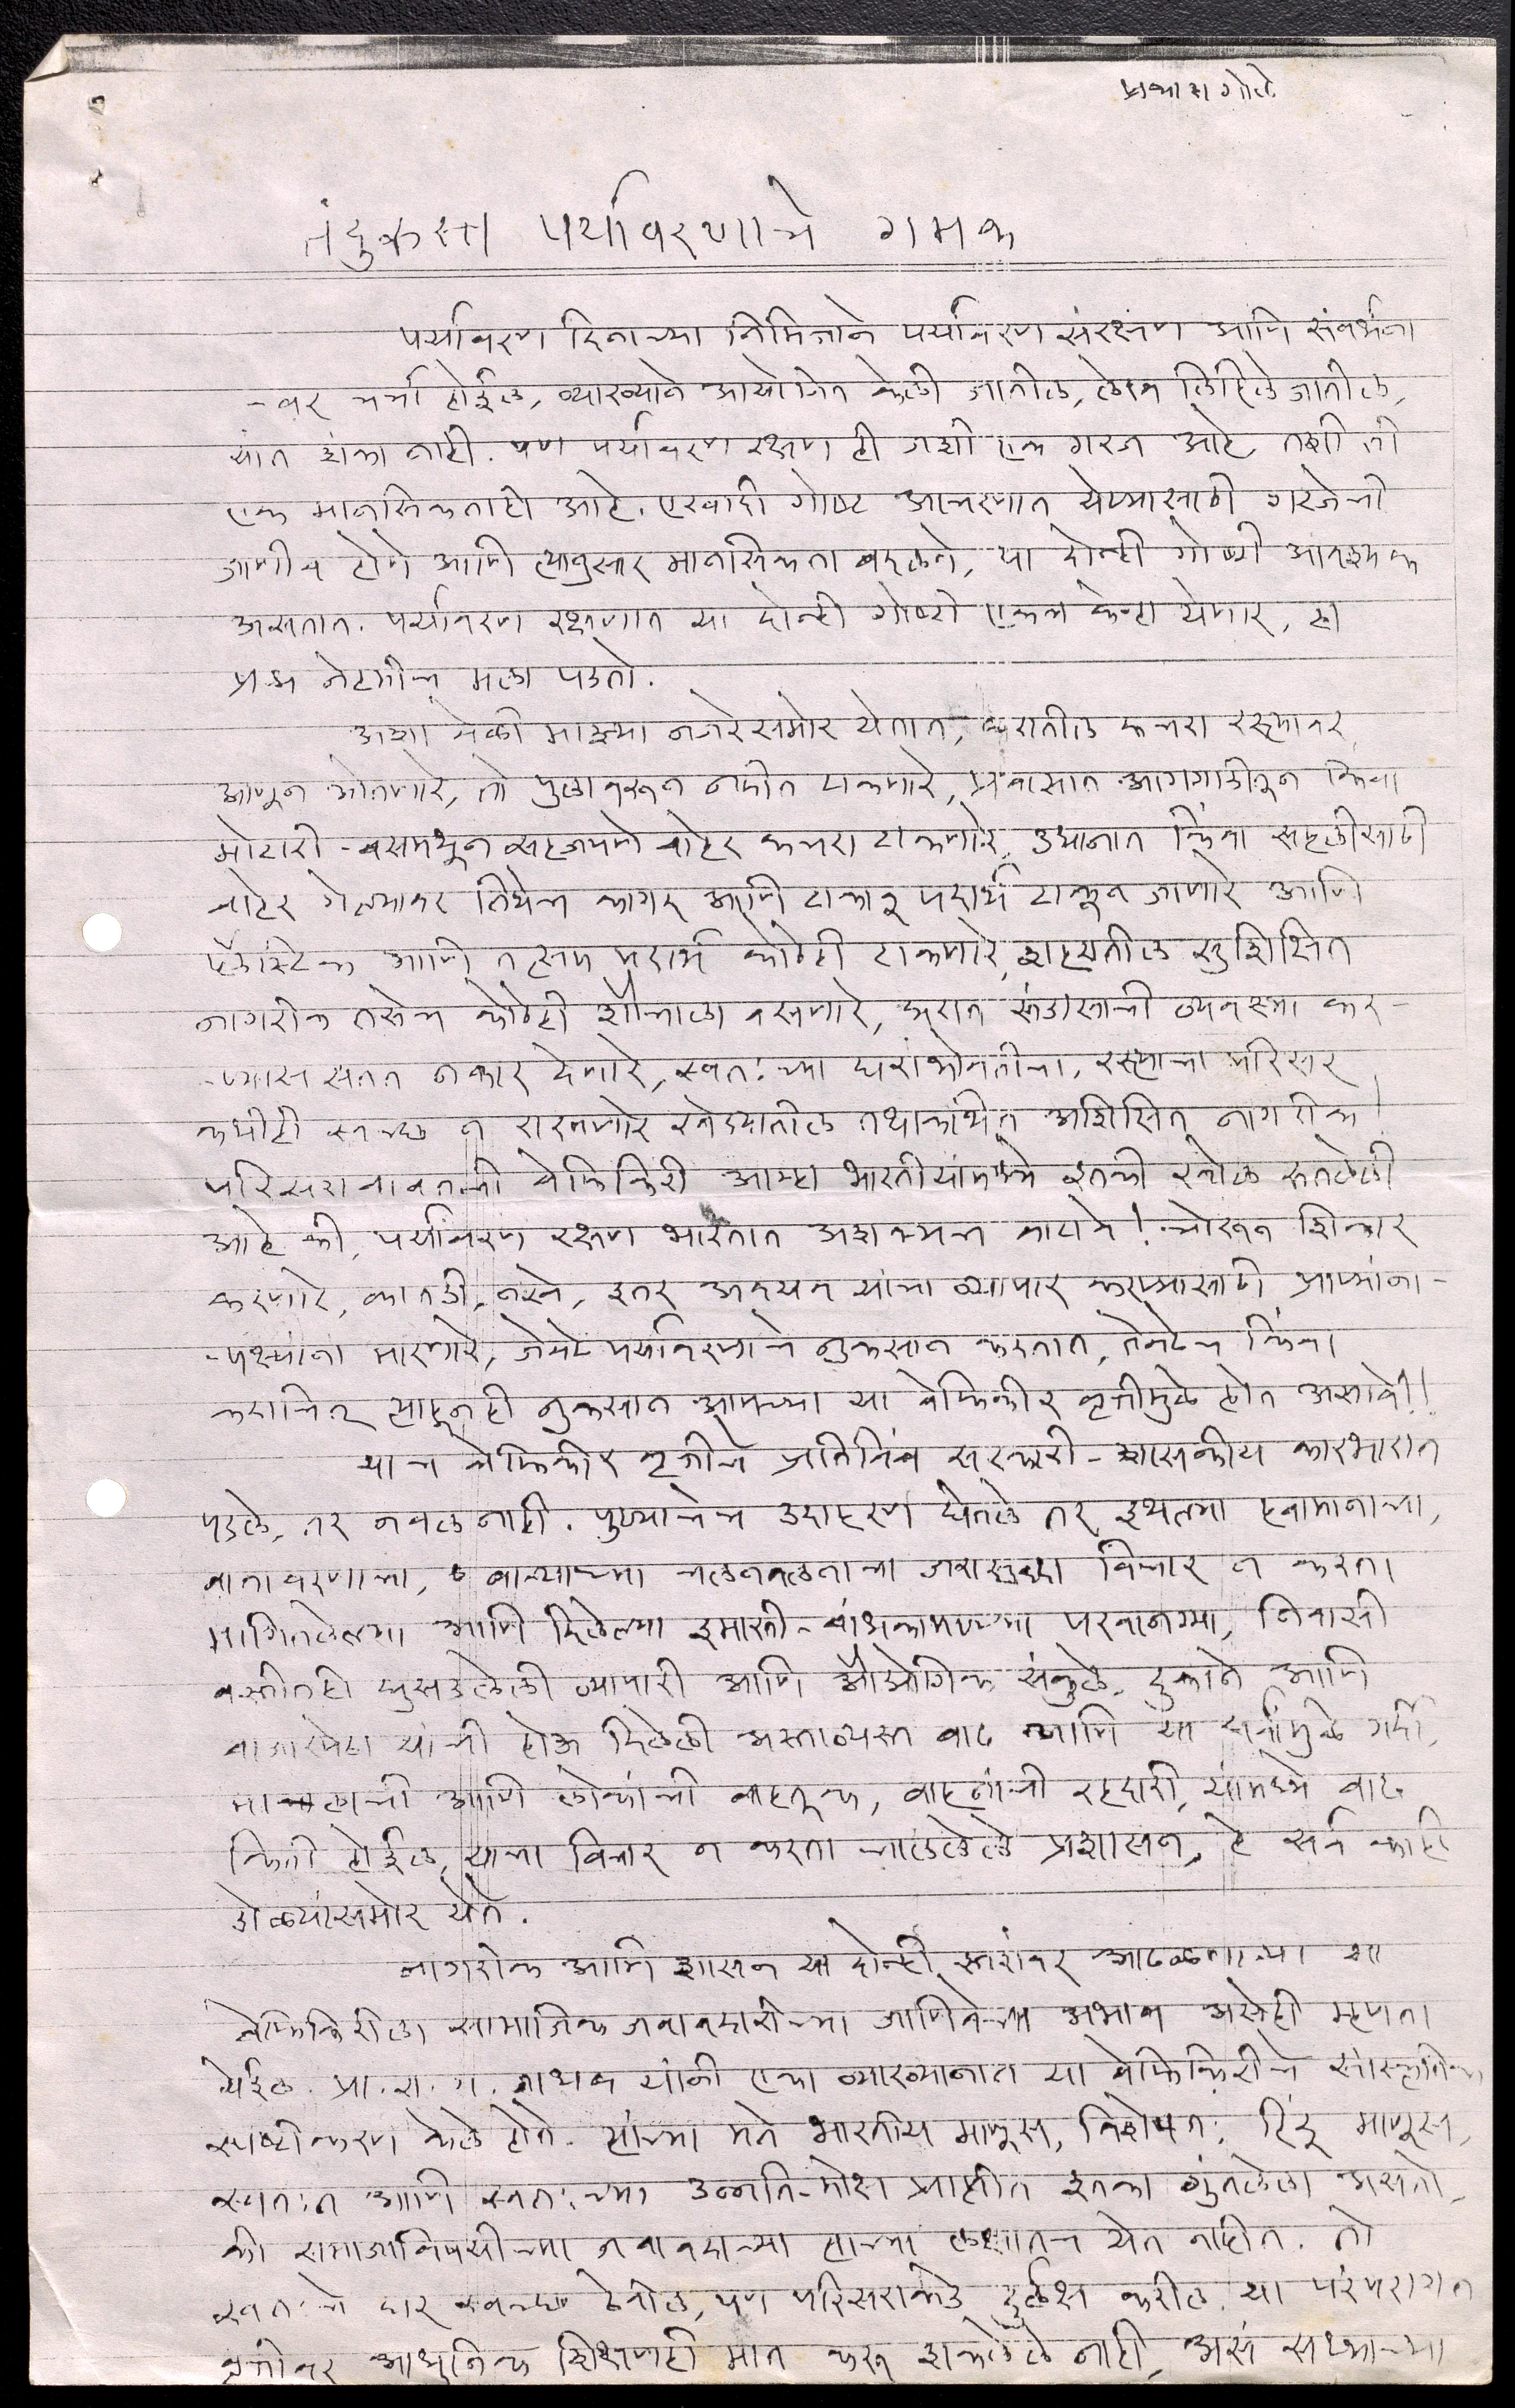 प्रकाश गोळे
तंदुरुस्त पर्यावरणाचे गमक
पर्यावरण दिनाच्या निमित्ताने पर्यावरण संरक्षण आणि संवर्धना
-वर चर्चा होईल, व्याख्याने आयोजित केली जातील, लेख लिहिले जातील,
यांत शंका नाही. पण पर्यावरण रक्षण ही जशी एक गरज आहे तशी ती
एक मानसिकताही आहे. एखादी गोष्ट आचरणात येण्यासाठी गरजेची
जाणीव होणे आणि त्यानुसार मानसिकता बदलणे, या दोन्ही गोष्टी आवश्यक
असतात. पर्यावरण रक्षणात या दोन्ही गोष्टी एकत्र केव्हा येणार, हा
प्रश्न नेहमीच मला पडतो.
अशा वेळी माझ्या नजरेसमोर येतात, घरातील कचरा रस्त्यावर
आणून ओतणारे, तो पुलावरून नदीत टाकणारे, प्रवासात आगगाडीतून किंवा
मोटारी-बसमधून सहजपणे बाहेर कचरा टाकणारे, उद्यानात किंवा सहलीसाठी
बाहेर गेल्यावर तिथेच कागद आणि टाकाऊ पदार्थ टाकून जाणारे आणि
प्लॅस्टिक आणि तत्सम पदार्थ कोठेही टाकणारे शहरातील सुशिक्षित
नागरीक तसेच कोठेही शौचाला बसणारे, घरात संडासाची व्यवस्था कर-
-ण्यास सतत नकार देणारे, स्वतःच्या घराभोवतीचा, रस्त्याचा परिसर
कधीही स्वच्छ न राखणारे खेड्यातील तथाकथित अशिक्षित नागरीक!
परिसराबाबतची बेफिकिरी आम्हा भारतीयांमध्ये इतकी खोल रुतलेली
आहे की, पर्यावरण रक्षण भारतात अशक्यच वाटावे! चोरून शिकार
करणारे, कातडी, नखे, इतर अवयव यांचा व्यापार करण्यासाठी प्राण्यांना-
-पक्ष्यांना मारणारे, जेवढे पर्यावरणाचे नुकसान करतात, तेवढेच किंवा
कदाचित त्याहूनही नुकसान आमच्या या बेफिकीर वृत्तीमुळे होत असावे!
याच बेफिकीर वृत्तीचे प्रतिबिंब सरकारी-शासकीय कारभारात
पडले, तर नवल नाही. पुण्याचेच उदाहरण घेतले तर, इथल्या हवामानाचा,
वातावरणाचा, वाऱ्याच्या चलनवलनाचा जरासुद्धा विचार न करता
मागितलेल्या आणि दिलेल्या इमारती-बांधकामाच्या परवानग्या, निवासी
वस्तीतही घुसडलेली व्यापारी आणि औद्योगिक संकुले, दुकाने आणि
बाजारपेठा यांची होऊ दिलेली अस्ताव्यस्त वाढ आणि या सर्वांमुळे गर्दी,
मालाची आणि लोकांची वाहतूक, वाहनांची रहदारी, यांमध्ये वाढ
किती होईल, याचा विचार न करता चाललेले प्रशासन, हे सर्व काही
डोळ्यांसमोर येते.
नागरीक आणि शासन या दोन्ही स्तरांवर आढळणाऱ्या या
बेफिकिरीला सामाजिक जबाबदारीच्या जाणिवेचा अभाव असेही म्हणता
येईल. प्रा. रा. ग. जाधव यांनी एका व्याख्यानात या बेफिकिरीचे सांस्कृतिक
स्पष्टीकरण केले होते. त्यांच्या मते भारतीय माणूस, विशेषतः हिंदू माणूस,
स्वतःत आणि स्वतःच्या उन्नति-मोक्ष प्राप्तीत इतका गुंतलेला असतो,
की समाजाविषयीच्या जबाबदाऱ्या त्याच्या लक्षातच येत नाहीत. तो
स्वतःचे घर स्वच्छ ठेवील, पण परिसराकडे दुर्लक्ष करील. या परंपरागत
वृत्तीवर आधुनिक शिक्षणही मात करू शकलेले नाही, असं सध्याच्या